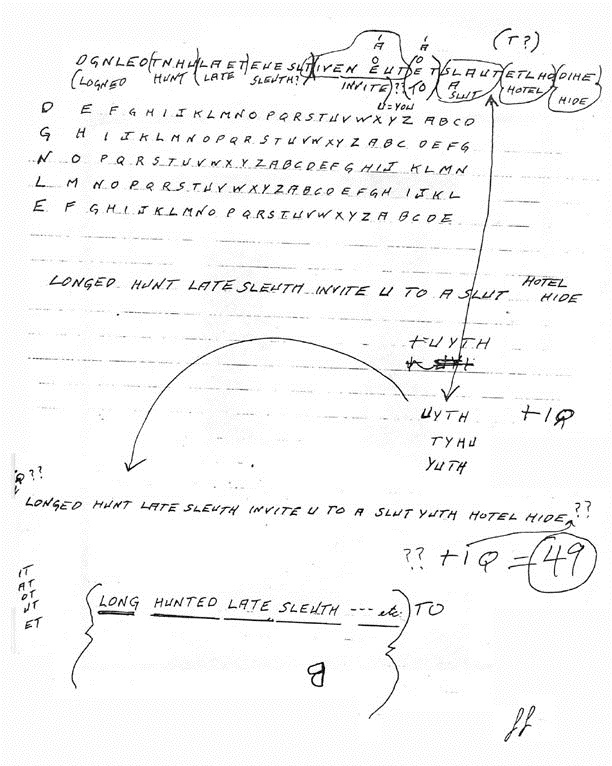 (T?)
I I
A A
O O
DGNLEO(TNHU(LAET)EUESLT)(IVEN EUT)(ET)(SLAUT)(ETLHO)(DIHE)
(LOGNED HUNT LATE SLEUTH? INVITE)?? (TO) A SLUT HOTEL HIDE
U=YOU
D E F G H I J K L M N O P Q R S T U V W X Y Z A B C D
G H I J K L M N O P Q R S T U V W X Y Z A B C D E F G
N O P Q R S T U V W X Y Z A B C D E F G H I J K L M N
L M N O P Q R S T U V W X Y Z A B C D E F G H I J K L
E F G H I J K L M N O P Q R S T U V W X Y Z A B C D E
LONGED HUNT LATE SLEUTH INVITE U TO A SLUT HOTEL
HIDE
+UYTH
UYTH +1Q
TYHU
YUTH
Q??
LONGED HUNT LATE SLEUTH INVITE U TO A SLUT YUTH HOTEL HIDE ??
?? +1Q = 49
IT
AT
OT
UT
ET
(LONG HUNTED LATE SLEUTH --- etc.) TO